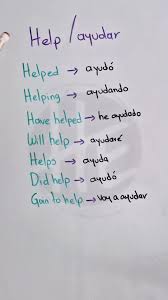 Help / ayudar
Helped → ayudó
Helping → ayudando
Have helped → he ayudado
Will help → ayudaré
Helps → ayuda
Did help → ayudó
Goin to help → Voy a ayudar